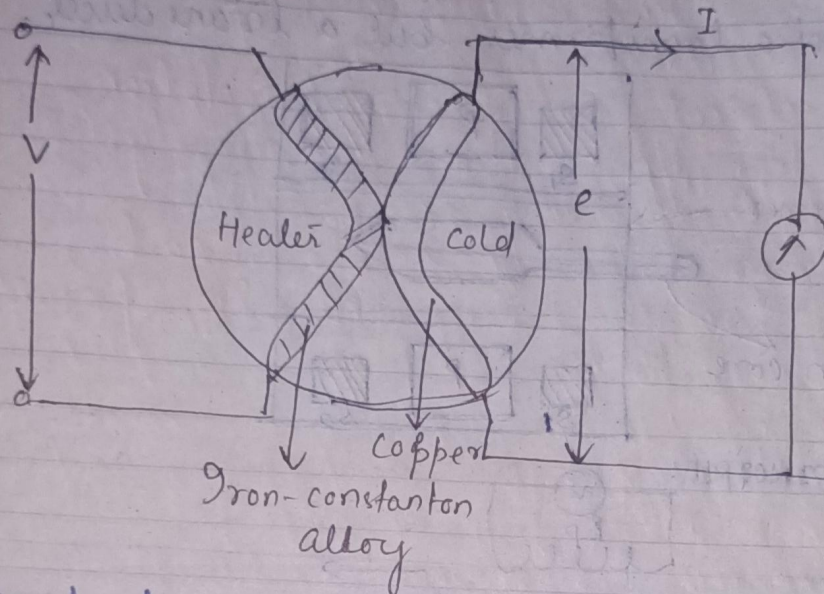 I
V
e
Heater
Cold
Copper
Iron-constanton
alloy